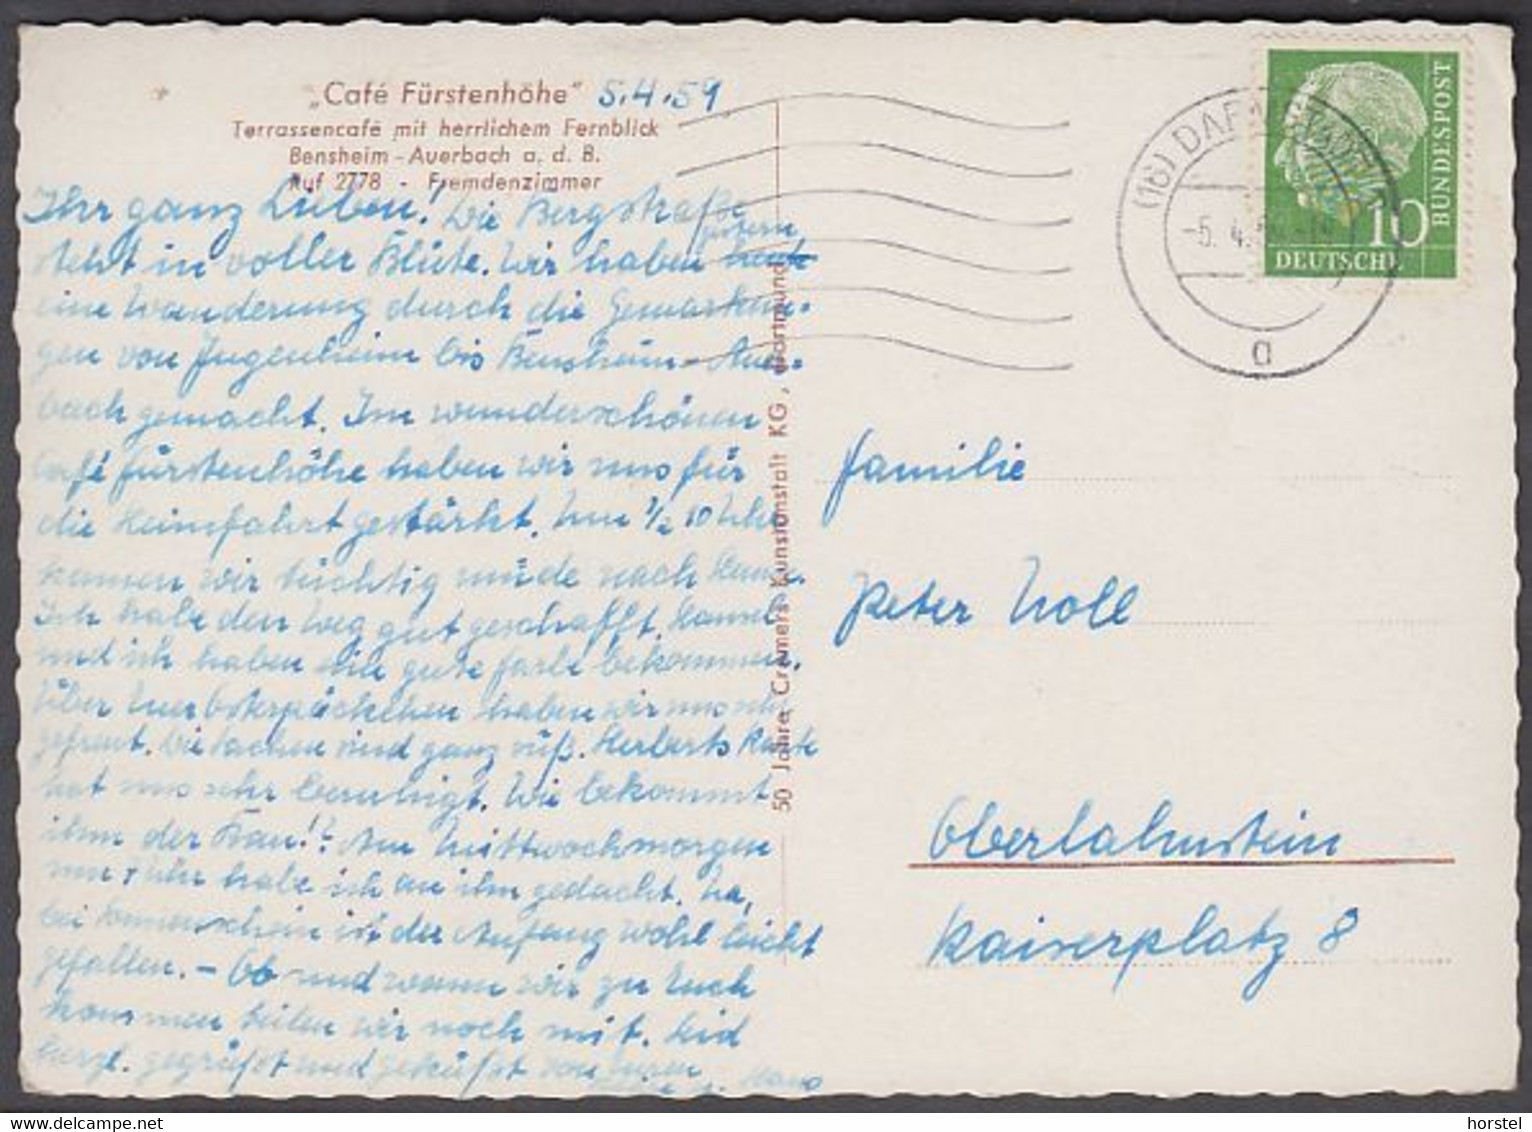 „Café Fürstenhöhe" 5.4.59
Terrassencafé mit herrlichem Fernblick
Bensheim - Auerbach a. d. B.
Ruf 2778 - Fremdenzimmer
Ihr ganz Lieben! Die Bergstraße
steht in voller Blüte. Wir haben heute gestern
eine Wanderung durch die Gemarkun-
gen von Jugenheim bis Bensheim-Auer-
bach gemacht. Im wunderschönen
Café Fürstenhöhe haben wir uns für
die Heimfahrt gestärkt. Um 1/2 10 Uhr
kamen wir tüchtig müde nach Hause.
Ich habe den Weg gut geschafft. Hansel
und ich haben eine gute Farbe bekommen.
Über Euer Osterpäckchen haben wir uns sehr
gefreut. Die Sachen sind ganz süß. Herberts Karte
hat uns sehr beruhigt. Wie bekommt
ihm der Bau!? Am Mittwochmorgen
um 7 Uhr habe ich an ihn gedacht. Na,
bei Sonnenschein ist der Anfang wohl leicht
gefallen. - Ob und wann wir zu Euch
kommen teilen wir noch mit. Seid
herzl. gegrüßt und geküßt von Euren
50 Jahre Cramers Kunstanstalt KG, Dortmund
(16) DARMSTADT
-5. 4. 59
a
10
DEUTSCHE
BUNDESPOST
Familie
Peter Noll
Oberlahnstein
Kaiserplatz 8
horstel